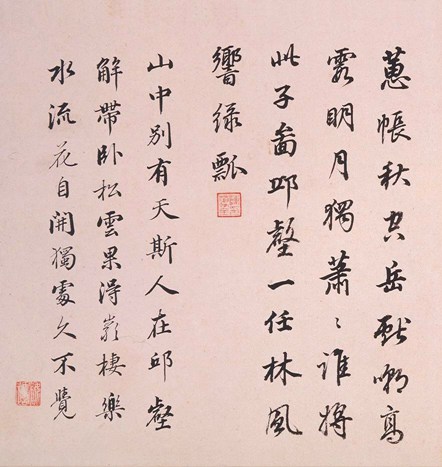 蕙帳秋空岳献嘲高
霞明月獨蕭〻誰將
此子啚邱壑一任林風
響綠瓢
山中別有天斯人在邱壑
解帶臥松雲果得巖棲樂
水流花自開獨處久不覺